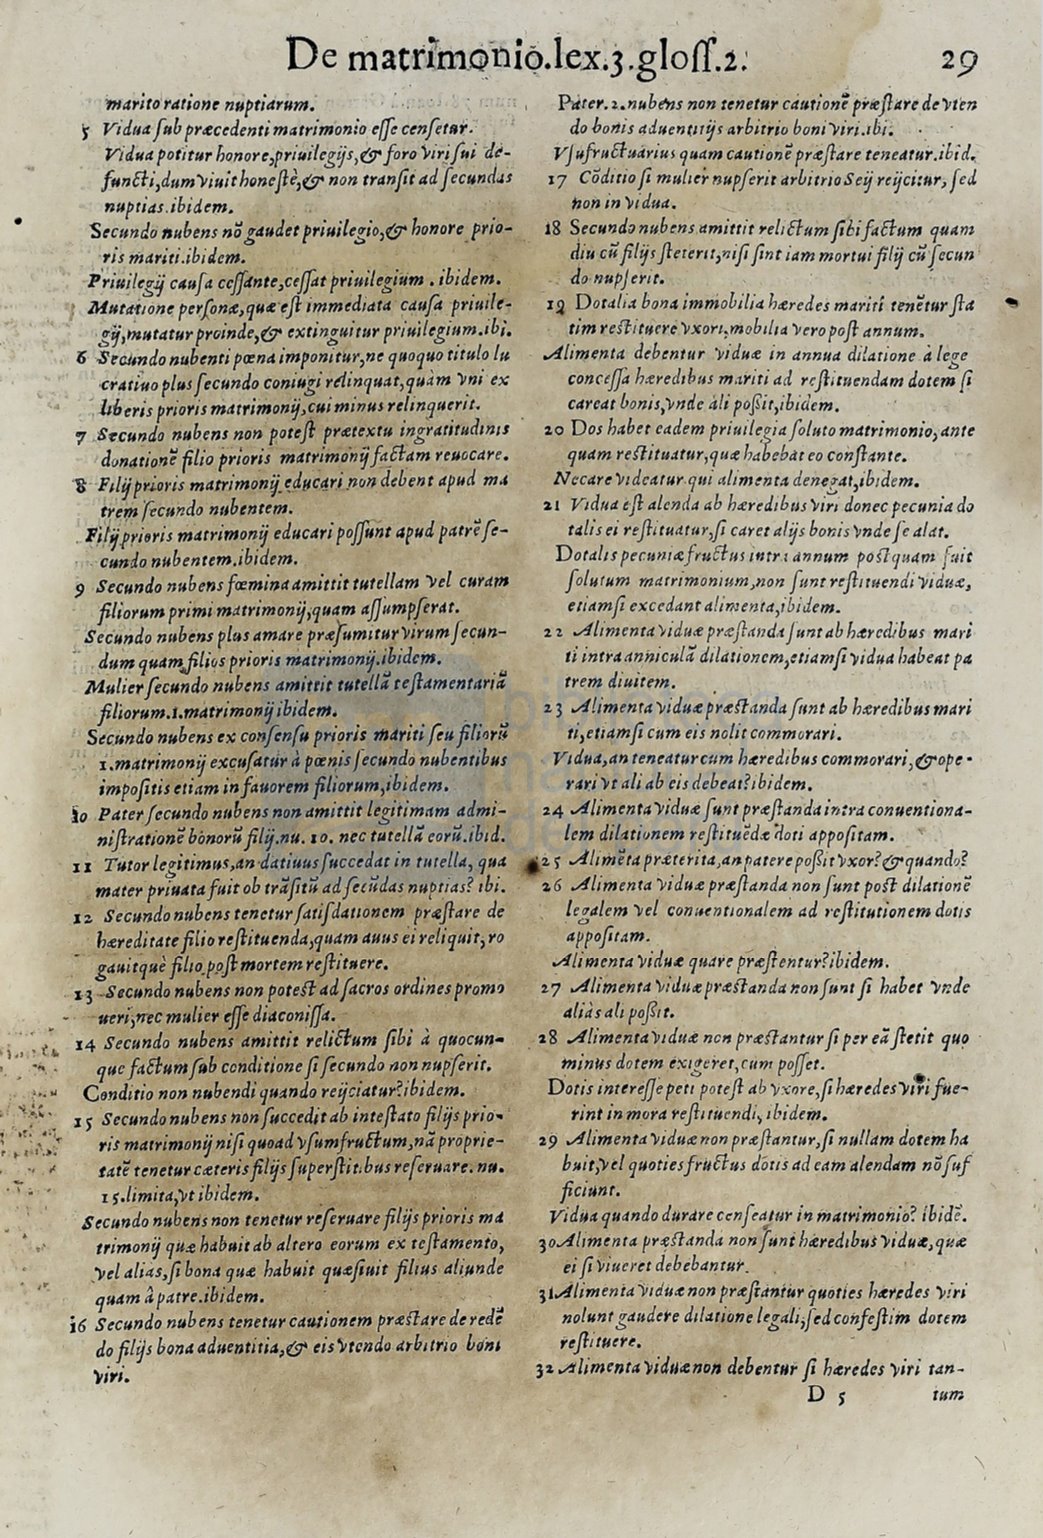 De matrimonio.lex.3.gloſſ.2.
29
marito ratione nuptiarum.
5 Vidua ſub præcedenti matrimonio eſſe cenſetur.
Vidua potitur honore,priuilegijs,& foro viri ſui de-
functi,dum viuit honeſtè,& non tranſit ad ſecundas
nuptias.ibidem.
Secundo nubens nõ gaudet priuilegio,& honore prio-
ris mariti.ibidem.
Priuilegij cauſa ceſſante,ceſſat priuilegium.ibidem.
Mutatione perſonæ,quæ eſt immediata cauſa priuile-
gij,mutatur proinde,& extinguitur priuilegium.ibi.
6 Secundo nubenti pœna imponitur,ne quoquo titulo lu
cratiuo plus ſecundo coniugi relinquat,quàm vni ex
liberis prioris matrimonij,cui minus relinquerit.
7 Secundo nubens non poteſt prætextu ingratitudinis
donationẽ filio prioris matrimonij factam reuocare.
8 Filij prioris matrimonij educari non debent apud ma
trem ſecundo nubentem.
Filij prioris matrimonij educari poſſunt apud patrẽ ſe-
cundo nubentem.ibidem.
9 Secundo nubens fœmina amittit tutellam vel curam
filiorum primi matrimonij,quam aſſumpſerat.
Secundo nubens plus amare præſumitur virum ſecun-
dum quam filios prioris matrimonij.ibidem.
Mulier ſecundo nubens amittit tutellã teſtamentariã
filiorum.1.matrimonij ibidem.
Secundo nubens ex conſenſu prioris mariti ſeu filiorũ
1.matrimonij excuſatur à pœnis ſecundo nubentibus
impoſitis etiam in fauorem filiorum,ibidem.
10 Pater ſecundo nubens non amittit legitimam admi-
niſtrationẽ bonorũ filij.nu. 10. nec tutellã eorũ.ibid.
11 Tutor legitimus,an datiuus ſuccedat in tutella, qua
mater priuata fuit ob trãſitũ ad ſecũdas nuptias? ibi.
12 Secundo nubens tenetur ſatiſdationem præſtare de
hæreditate filio reſtituenda,quam auus ei reliquit, ro
gauitquè filio poſt mortem reſtituere.
13 Secundo nubens non poteſt ad ſacros ordines promo
ueri,nec mulier eſſe diaconiſſa.
14 Secundo nubens amittit relictum ſibi à quocun-
que factum ſub conditione ſi ſecundo non nupſerit.
Conditio non nubendi quando reijciatur?ibidem.
15 Secundo nubens non ſuccedit ab inteſtato filijs prio-
ris matrimonij niſi quoad vſumfructum,nã proprie-
tatẽ tenetur cæteris filijs ſuperſtitibus reſeruare.nu.
15.limita,vt ibidem.
Secundo nubens non tenetur reſeruare filijs prioris ma
trimonij quæ habuit ab altero eorum ex teſtamento,
vel alias,ſi bona quæ habuit quæſiuit filius aliunde
quam à patre.ibidem.
16 Secundo nubens tenetur cautionem præſtare de redẽ
do filijs bona aduentitia,& eis vtendo arbitrio boni
viri.
Pater.2.nubens non tenetur cautionẽ præſtare de vten
do bonis aduentitijs arbitrio boni viri.ibi.
Vſufructuarius quam cautionẽ præſtare teneatur.ibid.
17 Cõditio ſi mulier nupſerit arbitrio Seij reijcitur, ſed
non in vidua.
18 Secundo nubens amittit relictum ſibi factum quam
diu cũ filijs ſteterit,niſi ſint iam mortui filij cũ ſecun
do nupſerit.
19 Dotalia bona immobilia hæredes mariti tenẽtur ſta
tim reſtituere vxori,mobilia vero poſt annum.
Alimenta debentur viduæ in annua dilatione à lege
conceſſa hæredibus mariti ad reſtituendam dotem ſi
careat bonis,vnde ali poßit,ibidem.
20 Dos habet eadem priuilegia ſoluto matrimonio,ante
quam reſtituatur,quæ habebat eo conſtante.
Necare videatur qui alimenta denegat,ibidem.
21 Vidua eſt alenda ab hæredibus viri donec pecunia do
talis ei reſtituatur,ſi caret alijs bonis vnde ſe alat.
Dotalis pecuniæ fructus intra annum poſtquam fuit
ſolutum matrimonium,non ſunt reſtituendi viduæ,
etiamſi excedant alimenta,ibidem.
22 Alimenta viduæ præſtanda ſunt ab hæredibus mari
ti intra anniculã dilationem,etiamſi vidua habeat pa
trem diuitem.
23 Alimenta viduæ præſtanda ſunt ab hæredibus mari
ti,etiamſi cum eis nolit commorari.
Vidua,an teneatur cum hæredibus commorari,& ope-
rari vt ali ab eis debeat?ibidem.
24 Alimenta viduæ ſunt præſtanda intra conuentiona-
lem dilationem reſtituẽdæ doti appoſitam.
25 Alimẽta præterita,an patere poßit vxor?& quando?
26 Alimenta viduæ præſtanda non ſunt poſt dilationẽ
legalem vel conuentionalem ad reſtitutionem dotis
appoſitam.
Alimenta viduæ quare præſtentur?ibidem.
27 Alimenta viduæ præſtanda non ſunt ſi habet vnde
aliàs ali poßit.
28 Alimenta viduæ non præſtantur ſi per eã ſtetit quo
minus dotem exigeret,cum poſſet.
Dotis intereſſe peti poteſt ab vxore,ſi hæredes viri fue-
rint in mora reſtituendi, ibidem.
29 Alimenta viduæ non præſtantur,ſi nullam dotem ha
buit,vel quoties fructus dotis ad eam alendam nõ ſuf
ficiunt.
Vidua quando durare cenſeatur in matrimonio? ibidẽ.
30 Alimenta præſtanda non ſunt hæredibus viduæ,quæ
ei ſi viueret debebantur.
31 Alimenta viduæ non præſtantur quoties hæredes viri
nolunt gaudere dilatione legali,ſed confeſtim dotem
reſtituere.
32 Alimenta viduæ non debentur ſi hæredes viri tan-
D 5
tum